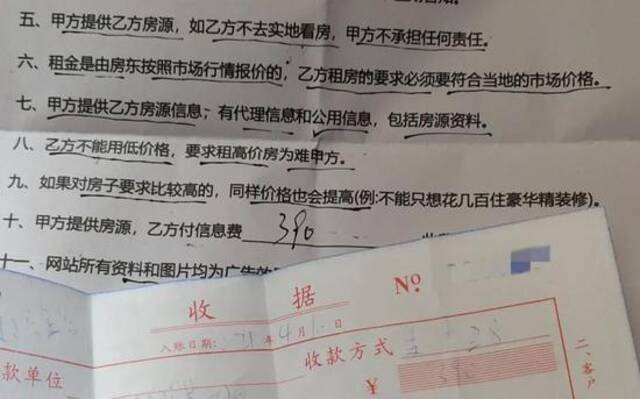 五、甲方提供乙方房源，如乙方不去实地看房，甲方不承担任何责任。
六、租金是由房东按照市场行情报价的，乙方租房的要求必须要符合当地的市场价格。
七、甲方提供乙方房源信息，有代理信息和公用信息，包括房源资料。
八、乙方不能用低价格，要求租高价房为难甲方。
九、如果对房子要求比较高的，同样价格也会提高(例:不能只想花几百住豪华精装修)。
十、甲方提供房源，乙方付信息费 390
十一、网站所有资料和图片均为广告效
收 据 №
入账日期: 21年4月 日
收款方式
款单位
￥
二、客户